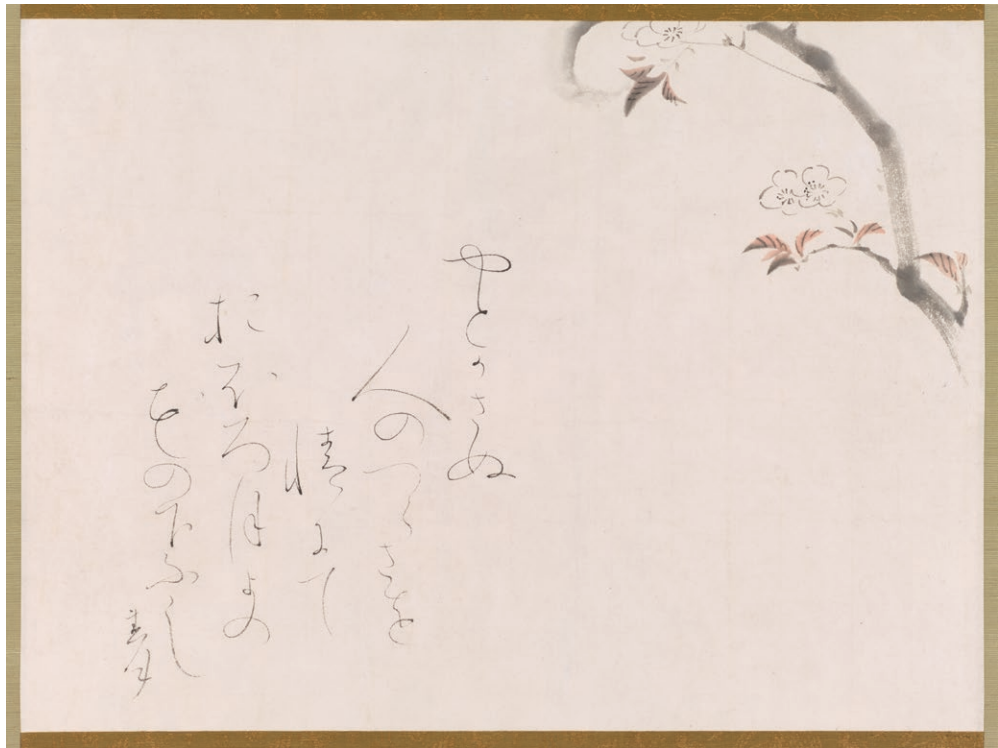 やとかさぬ
人のつらさを
情にて
おほろ月よの
花の下ふし
蓮月